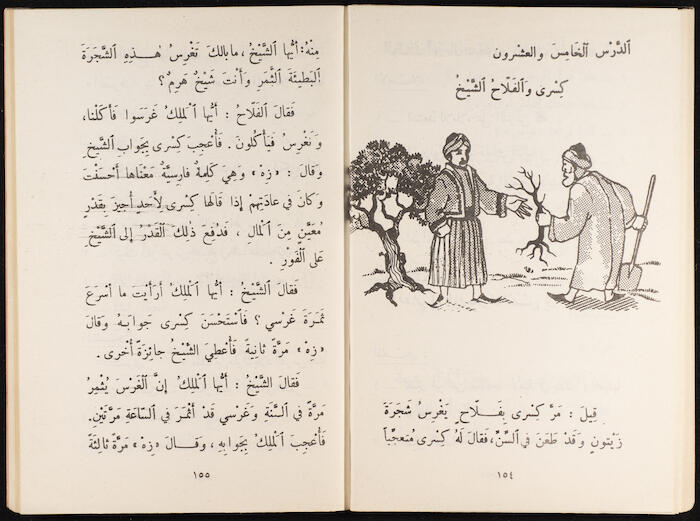 الدَّرْس الخَامِسَ والعشرون
كِسْرى وَالفَلّاحُ الشَّيْخُ
قِيلَ : مَرَّ كِسْرى بِفَلّاحٍ يَغْرِسُ شَجَرَةَ
زَيْتونٍ وَقَدْ طَعَنَ في السِّنِّ، فَقالَ لَهُ كِسْرى مُتعجِّباً
١٥٤
مِنْهُ: أيُّها الشَّيْخُ ، ما بالكَ تَغْرِسُ هٰذِهِ الشَّجَرَةَ
البَطيئَةَ الثَّمَرِ وَأنْتَ شَيْخٌ هَرِمٌ ؟
فَقالَ الفَلّاحُ : أيُّها المَلِكُ غَرَسوا فَأكَلْنا،
وَنَغْرِسُ فَيَأكُلونَ . فَأُعْجِبَ كِسْرى بِجَوابِ الشَّيْخِ
وَقالَ : «زِهْ» وَهِيَ كَلِمَةٌ فارِسِيَّةٌ مَعْناها أحْسَنْتَ
وَكانَ في عادَتِهِمْ إذا قالَها كِسْرى لِأحَدٍ أُجيزَ بِقَدْرٍ
مُعَيَّنٍ مِنَ المالِ ، فَدُفِعَ ذلِكَ القَدْرُ إلى الشَّيْخِ
عَلى الفَوْرِ .
فَقالَ الشَّيْخُ : أيُّها المَلِكُ أرَأيْتَ ما أسْرَعَ
ثَمَرَةَ غَرْسي ؟ فَاسْتَحْسَنَ كِسْرى جَوابَهُ وَقالَ
«زِهْ» مَرَّةً ثانِيَةً فَأُعْطِيَ الشَّيْخُ جائِزَةً أُخْرى .
فَقالَ الشَّيْخُ : أيُّها المَلِكُ إنَّ الغَرْسَ يُثْمِرُ
مَرَّةً في السَّنَةِ وَغَرْسي قَدْ أثْمَرَ في السّاعَةِ مَرَّتَيْنِ.
فَأُعْجِبَ المَلِكُ بِجَوابِهِ ، وَقالَ «زِهْ» مَرَّةً ثالِثَةً
١٥٥